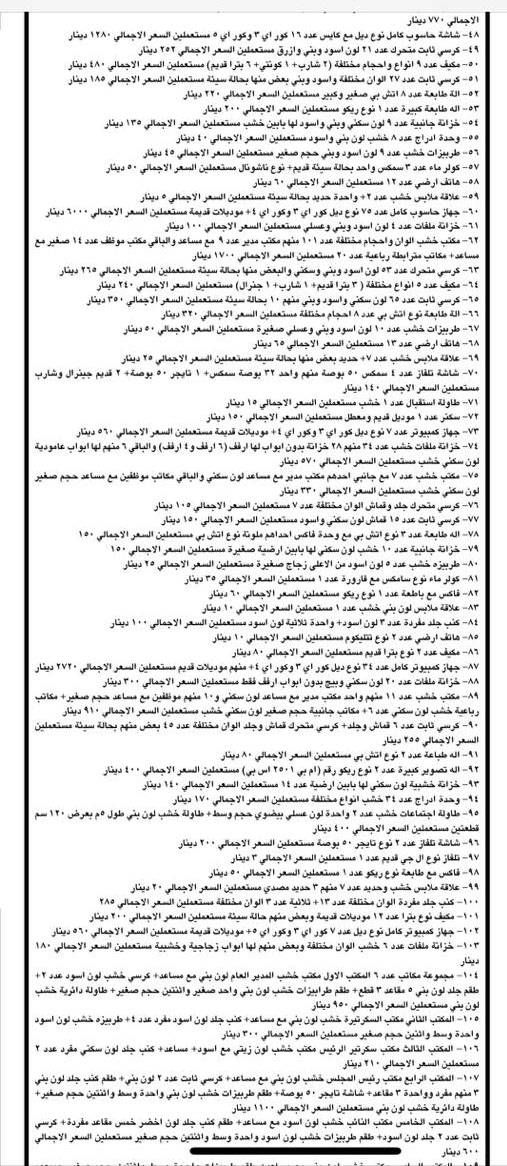 الاجمالي ٧٧٠ دينار
٤٨- شاشة حاسوب كامل نوع ديل مع كايس عدد ١٦ كور اي ٣ وكور اي ٥ مستعملين السعر الاجمالي ١٢٨٠ دينار
٤٩- كرسي ثابت متحرك عدد ٢١ لون اسود وبني وازرق مستعملين السعر الاجمالي ٢٥٢ دينار
٥٠- مكيف عدد ٩ انواع واحجام مختلفة (٢ شارب+ ١ كونتي+ ٦ بترا قديم) مستعملين السعر الاجمالي ٤٨٠ دينار
٥١- كرسي ثابت عدد ٢٧ الوان مختلفة واسود وبني بعض منها بحالة سيئة مستعملين السعر الاجمالي ١٨٥ دينار
٥٢- الة طابعة عدد ٨ اتش بي صغير وكبير مستعملين السعر الاجمالي ٢٢٠ دينار
٥٣- اله طابعة كبيرة عدد ١ نوع ريكو مستعملين السعر الاجمالي ٢٠٠ دينار
٥٤- خزانة جانبية عدد ٩ لون سكني وبني واسود لها بابين خشب مستعملين السعر الاجمالي ١٣٥ دينار
٥٥- وحدة ادراج عدد ٨ خشب لون بني واسود مستعملين السعر الاجمالي ٤٠ دينار
٥٦- طربيزات خشب عدد ٩ لون اسود وبني حجم صغير مستعملين السعر الاجمالي ٤٥ دينار
٥٧- كولر ماء عدد ٣ سمكس واحد بحالة سيئة قديم+ نوع ناشونال مستعملين السعر الاجمالي ٥٠ دينار
٥٨- هاتف ارضي عدد ١٢ مستعملين السعر الاجمالي ٦٠ دينار
٥٩- علاقة ملابس خشب عدد ٢+ واحدة حديد بحالة سيئة مستعملين السعر الاجمالي ٥ دينار
٦٠- جهاز حاسوب كامل عدد ٧٥ نوع ديل كور اي ٣ وكور اي ٤+ موديلات قديمة مستعملين السعر الاجمالي ٦٠٠٠ دينار
٦١- خزانة ملفات عدد ٤ لون اسود وبني وعسلي مستعملين السعر الاجمالي ١٠٠ دينار
٦٢- مكتب خشب الوان واحجام مختلفة عدد ١٠١ منهم مكتب مدير عدد ٩ مع مساعد والباقي مكتب موظف عدد ١٤ صغير مع
مساعد+ مكاتب مترابطة رباعية عدد ٢٠ مستعملين السعر الاجمالي ١٧٠٠ دينار
٦٣- كرسي متحرك عدد ٥٣ لون اسود وبني وسكني والبعض منها بحالة سيئة مستعملين السعر الاجمالي ٢٦٥ دينار
٦٤- مكيف عدد ٥ انواع مختلفة ( ٣ بترا قديم+ ١ شارب+ ١ جنرال) مستعملين السعر الاجمالي ٢٤٠ دينار
٦٥- كرسي ثابت عدد ٦٥ لون سكني واسود وبني منهم ١٠ بحالة سيئة مستعملين السعر الاجمالي ٣٥٠ دينار
٦٦- الة طابعة نوع اتش بي عدد ٨ احجام مختلفة مستعملين السعر الاجمالي ٣٢٠ دينار
٦٧- طربيزات خشب عدد ١٠ لون اسود وبني وعسلي صغيرة مستعملين السعر الاجمالي ٥٠ دينار
٦٨- هاتف ارضي عدد ١٣ مستعملين السعر الاجمالي ٦٥ دينار
٦٩- علاقة ملابس خشب عدد ٧+ حديد بعض منها بحالة سيئة مستعملين السعر الاجمالي ٢٥ دينار
٧٠- شاشة تلفاز عدد ٤ سمكس ٥٠ بوصة منهم واحد ٣٢ بوصة سمكس+ ١ تايجر ٥٠ بوصة+ ٢ قديم جينرال وشارب
مستعملين السعر الاجمالي ١٤٠ دينار
٧١- طاولة استقبال عدد ١ خشب مستعملين السعر الاجمالي ١٥ دينار
٧٢- سكنر عدد ١ موديل قديم ومعطل مستعملين السعر الاجمالي ١٥٠ دينار
٧٣- جهاز كمبيوتر عدد ٧ نوع ديل كور اي ٣ وكور اي ٤+ موديلات قديمة مستعملين السعر الاجمالي ٥٦٠ دينار
٧٤- خزانة ملفات خشب عدد ٣٤ منهم ٢٨ خزانة بدون ابواب لها ارفف (٦ ارفف و٤ ارفف) والباقي ٦ منهم لها ابواب عامودية
لون سكني خشب مستعملين السعر الاجمالي ٥٧٠ دينار
٧٥- مكتب خشب عدد ٧ مع جانبي احدهم مكتب مدير مع مساعد لون سكني والباقي مكاتب موظفين مع مساعد حجم صغير
لون سكني خشب مستعملين السعر الاجمالي ٣٣٠ دينار
٧٦- كرسي متحرك جلد وقماش الوان مختلفة عدد ٧ مستعملين السعر الاجمالي ١٠٥ دينار
٧٧- كرسي ثابت عدد ١٥ قماش لون سكني واسود مستعملين السعر الاجمالي ١٥٠ دينار
٧٨- اله طابعة عدد ٣ نوع اتش بي مع وحدة فاكس احداهم ملونة نوع اتش بي مستعملين السعر الاجمالي ١٥٠
٧٩- خزانة جانبية عدد ١٠ خشب لون سكني لها بابين ارضية صغيرة مستعملين السعر الاجمالي ١٥٠
٨٠- طربيزه خشب عدد ٥ لون اسود من الاعلى زجاج صغيرة مستعملين السعر الاجمالي ٢٥ دينار
٨١- كولر ماء نوع سامكس مع قارورة عدد ١ مستعملين السعر الاجمالي ٣٥ دينار
٨٢- فاكس مع باطعة عدد ١ نوع ريكو مستعملين السعر الاجمالي ٦٠ دينار
٨٣- علاقة ملابس لون بني خشب عدد ١ مستعملين السعر الاجمالي ١٠ دينار
٨٤- كنب جلد مفردة عدد ٣ لون اسود+ واحدة ثلاثية لون اسود مستعملين السعر الاجمالي ١٠٠ دينار
٨٥- هاتف ارضي عدد ٢ نوع تتليكوم مستعملين السعر الاجمالي ١٠ دينار
٨٦- مكيف عدد ٢ نوع بترا قديم مستعملين السعر الاجمالي ٨٠ دينار
٨٧- جهاز كمبيوتر كامل عدد ٣٤ نوع ديل كور اي ٣ وكور اي ٤+ منهم موديلات قديم مستعملين السعر الاجمالي ٢٧٢٠ دينار
٨٨- خزانة ملفات عدد ٢٠ لون سكني وبيج بدون ابواب ارفف فقط مستعملين السعر الاجمالي ٣٠٠ دينار
٨٩- مكتب خشب عدد ١١ منهم واحد مكتب مدير مع مساعد لون سكني و١٠ منهم موظفين مع مساعد حجم صغير+ مكاتب
رباعية خشب لون سكني عدد ٦+ مكاتب جانبية حجم صغير لون سكني خشب مستعملين السعر الاجمالي ٩١٠ دينار
٩٠- كرسي ثابت عدد ٦ قماش وجلد+ كرسي متحرك قماش وجلد الوان مختلفة عدد ٤٥ بعض منهم بحالة سيئة مستعملين
السعر الاجمالي ٢٥٥ دينار
٩١- اله طباعة عدد ٢ نوع اتش بي مستعملين السعر الاجمالي ٨٠ دينار
٩٢- اله تصوير كبيرة عدد ٢ نوع ريكو رقم (ام بي ٢٥٠١ اس بي) مستعملين السعر الاجمالي ٤٠٠ دينار
٩٣- خزانة خشبية لون سكني لها بابين ارضية عدد ١٤ مستعملين السعر الاجمالي ١٤٠ دينار
٩٤- وحدة ادراج عدد ٣٤ خشب انواع مختلفة مستعملين السعر الاجمالي ١٧٠ دينار
٩٥- طاولة اجتماعات خشب عدد ٢ واحدة لون عسلي بيضوي حجم وسط+ طاولة خشب لون بني طول ٥م بعرض ١٢٠ سم
قطعتين مستعملين السعر الاجمالي ٤٠٠ دينار
٩٦- شاشة تلفاز عدد ٢ نوع تايجر ٥٠ بوصة مستعملين السعر الاجمالي ٢٠٠ دينار
٩٧- تلفاز نوع ال جي قديم عدد ١ مستعملين السعر الاجمالي ٣ دينار
٩٨- فاكس مع طابعة نوع ريكو عدد ١ مستعملين السعر الاجمالي ٥٠ دينار
٩٩- علاقة ملابس خشب وحديد عدد ٧ منهم ٣ حديد مصدي مستعملين السعر الاجمالي ٢٠ دينار
١٠٠- كنب جلد مفردة الوان مختلفة عدد ١٣+ ثلاثية عدد ٣ الوان مختلفة مستعملين السعر الاجمالي ٢٨٥
١٠١- مكيف نوع بترا عدد ١٢ موديلات قديمة وبعض منهم حالة سيئة مستعملين السعر الاجمالي ٢٠٠ دينار
١٠٢- جهاز كمبيوتر كامل نوع ديل عدد ٧ كور اي ٣ وكور اي ٥+ موديلات قديمة مستعملين السعر الاجمالي ٥٦٠ دينار
١٠٣- خزانة ملفات عدد ٦ خشب الوان مختلفة وبعض منهم لها ابواب زجاجية وخشبية مستعملين السعر الاجمالي ١٨٠
دينار
١٠٤- مجموعة مكاتب عدد ٦ المكتب الاول مكتب خشب المدير العام لون بني مع مساعد+ كرسي خشب لون اسود عدد ٢+
طقم جلد لون بني ٥ مقاعد ٣ قطع+ طقم طرابيزات خشب لون بني واحد صغير واثنتين حجم صغير+ طاولة دائرية خشب
لون بني مستعملين السعر الاجمالي ٩٥٠ دينار
١٠٥- المكتب الثاني مكتب السكرتيرة خشب لون بني مع مساعد+ كنب جلد لون اسود مفرد عدد ٤+ طربيزه خشب لون اسود
واحدة وسط واثنين حجم صغير مستعملين السعر الاجمالي ٣٠٠ دينار
١٠٦- المكتب الثالث مكتب سكرتير الرئيس مكتب خشب لون زيتي مع اسود+ مساعد+ كنب جلد لون سكني مفرد عدد ٢
مستعملين السعر الاجمالي ٢١٠ دينار
١٠٧- المكتب الرابع مكتب رئيس المجلس خشب لون بني مع مساعد+ كرسي ثابت عدد ٢ لون بني+ طقم كنب جلد لون بني
٣ منهم مفرد وواحدة ٣ مقاعد+ شاشة تايجر ٥٠ بوصة+ طقم طربيزات خشب لون بني واحدة وسط واثنتين حجم صغير+
طاولة دائرية خشب لون بني مستعملين السعر الاجمالي ١١٠٠ دينار
١٠٨- المكتب الخامس مكتب النائب خشب لون اسود مع مساعد+ طقم كنب جلد لون اخضر خمس مقاعد مفردة+ كرسي
ثابت عدد ٢ جلد لون اسود+ طقم طربيزات خشب لون اسود واحدة وسط واثنتين حجم صغير مستعملين السعر الاجمالي
٦٠٠ دينار